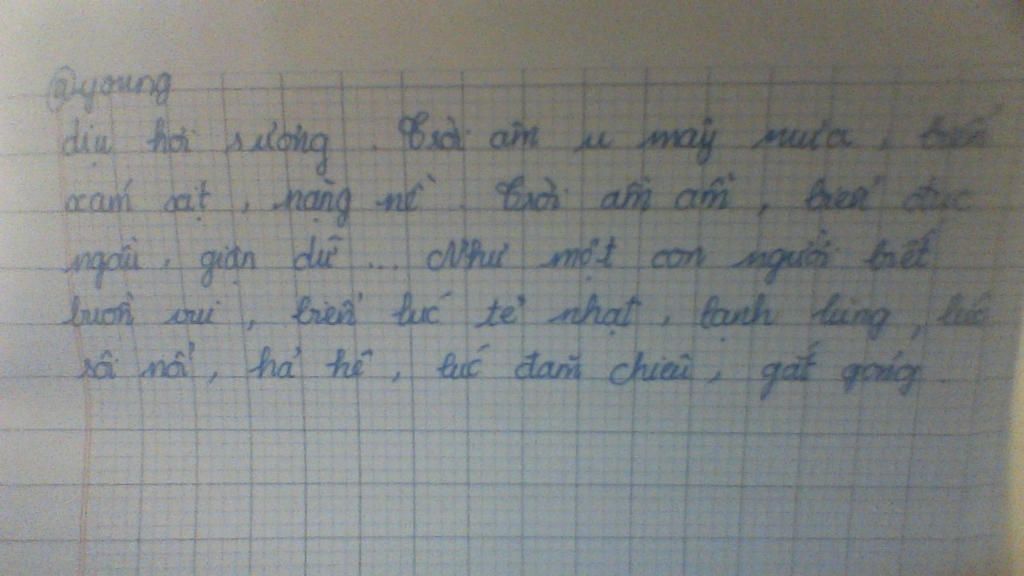 @young
dịu hơi sương. Trời âm u mây mưa, biển
xám xịt, nặng nề. Trời ầm ầm, biển đục
ngầu, giận dữ... Như một con người biết
buồn vui, biển lúc tẻ nhạt, lạnh lùng, lúc
sôi nổi, hả hê, lúc đăm chiêu, gắt gỏng.